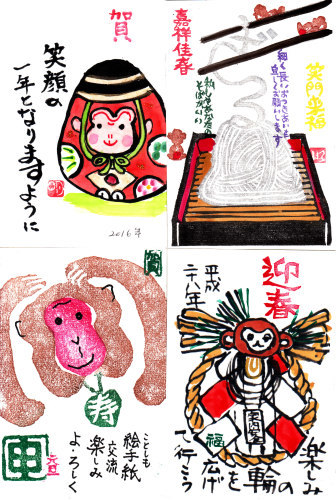 賀
笑顔の
一年となりますように
2016年
嘉祥佳春
笑門来福
細く長いおつきあいを
宜しくお願いします
私はあなたの
そばがいい
賀
寿
申
元旦
ことしも
絵手紙
交流
楽しみ
よ・ろ・しく
迎春
平成
二十八年
福
楽しみ
の輪を
広げ
て行こう